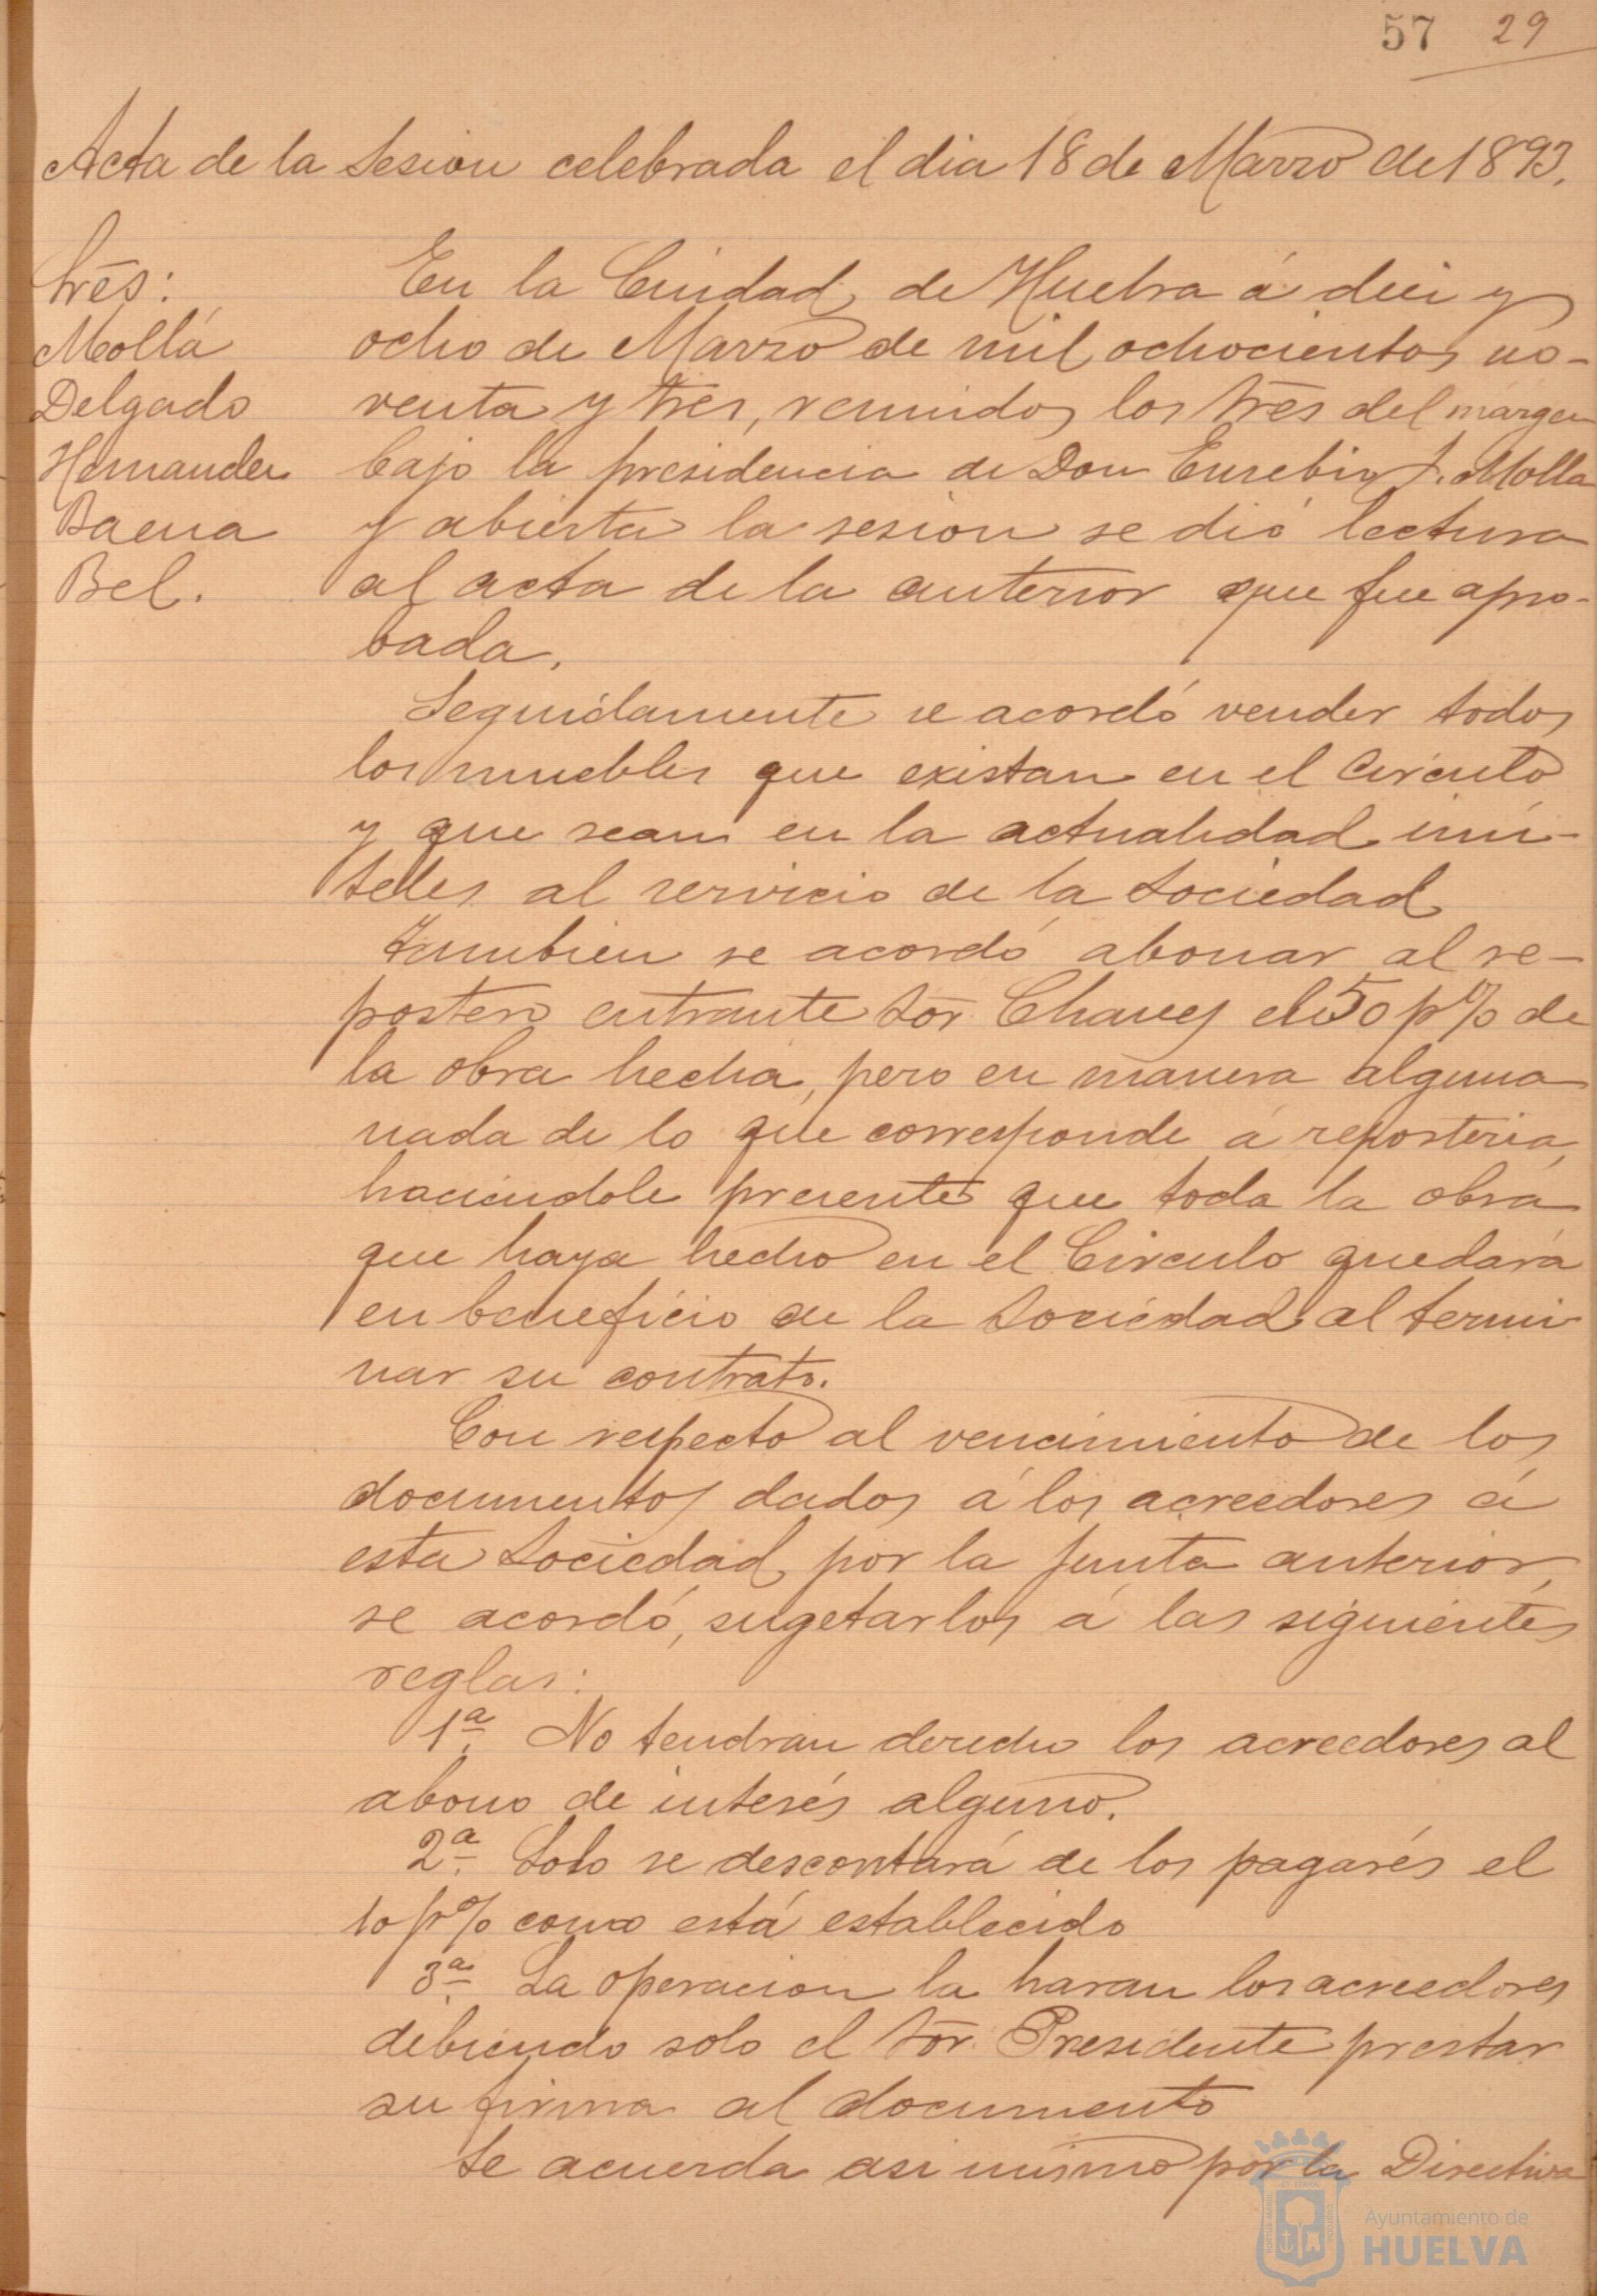 57 29
Acta de la Sesion celebrada el dia 18 de Marzo de 1893.
Sres:
Mollá
Delgado
Hernandez
Baena
Bel.
En la Ciudad de Huelva á diez y
ocho de Marzo de mil ochocientos no-
venta y tres, reunidos los Sres del márgen
bajo la presidencia de Don Eusebio J. Molla
y abierta la sesion se dió lectura
al acta de la anterior que fue apro-
bada.
Seguidamente se acordó vender todos
los muebles que existan en el Circulo
y que sean en la actualidad inú-
tiles al servicio de la Sociedad
Tambien se acordó abonar al re-
postero entrante Sor. Chaves el 50 p% de
la obra hecha, pero en manera alguna
nada de lo que corresponde á reposteria,
haciendole presente que toda la obra
que haya hecho en el Circulo quedará
en beneficio de la Sociedad al termi-
nar su contrato.
Con respecto al vencimiento de los
documentos dados á los acreedores á
esta Sociedad por la Junta anterior,
se acordó, sugetarlos á las siguientes
reglas:
1ª No tendran derecho los acreedores al
abono de interés alguno.
2ª Solo se descontará de los pagarés el
10 p% como está establecido
3ª La operacion la haran los acreedores
debiendo solo el Sor. Presidente prestar
su firma al documento
Se acuerda asi mismo por la Directiva
Ayuntamiento de
HUELVA